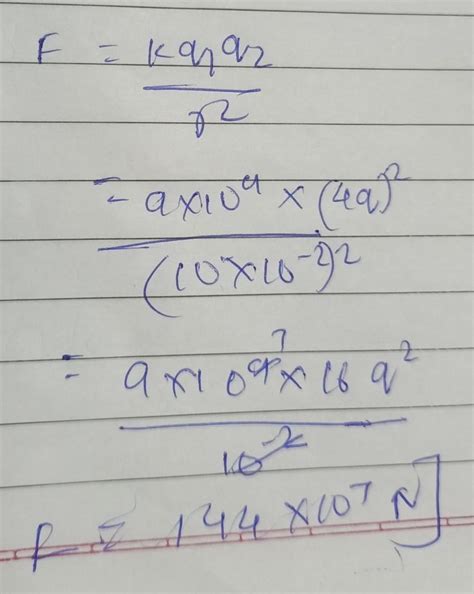 F = kq1q2
r2
= 9×10^9 × (4q)^2
(10×10^-2)^2
= 9×10^9 7 × 16 q^2
10^-2
F = 144 ×10^7 N]